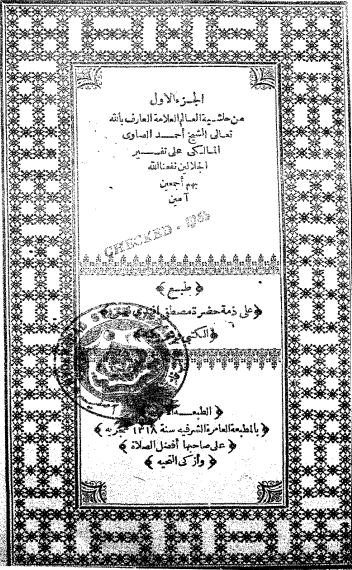 الجزء الاول
من حاشية العالم العلامة العارف بالله
تعالى الشيخ أحمد الصاوى
المالكى على تفسير
الجلالين نفعنا الله
بهم أجمعين
آمين
CHECKED - 1963
﴿ طبع ﴾
﴿ على ذمة حضرة مصطفى
الكتبى
﴿ الطبعة
﴿ بالمطبعة العامرة الشرفيه سنة ١٣١٨ هجريه ﴾
﴿ على صاحبها أفضل الصلاة ﴾
﴿ وأزكى التحيه ﴾